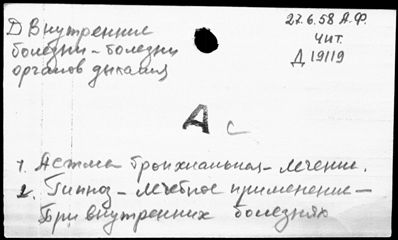 Д Внутренние
болезни - болезни
органов дыхания
27.6.58 А.Ф.
Чит.
Д 19119
А с
1. Астма бронхиальная - лечение.
2. Гипноз - лечебное применение -
При внутренних болезнях